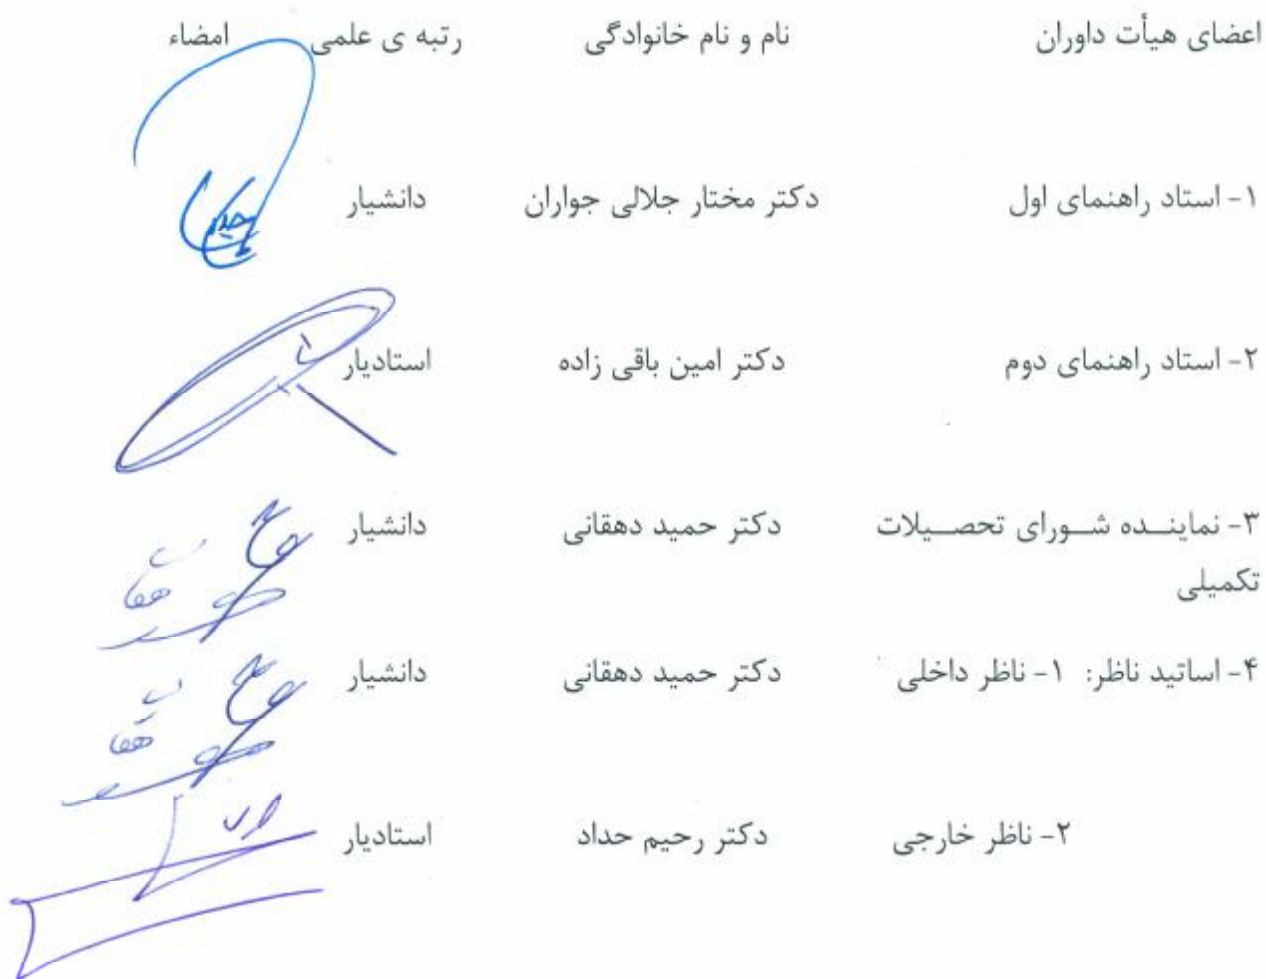 اعضای هیأت داوران نام و نام خانوادگی رتبه ی علمی امضاء
۱- استاد راهنمای اول دکتر مختار جلالی جواران دانشیار
۲- استاد راهنمای دوم دکتر امین باقی زاده استادیار
۳- نماینــده شــورای تحصــیلات دکتر حمید دهقانی دانشیار
تکمیلی
۴- اساتید ناظر: ۱- ناظر داخلی دکتر حمید دهقانی دانشیار
۲- ناظر خارجی دکتر رحیم حداد استادیار